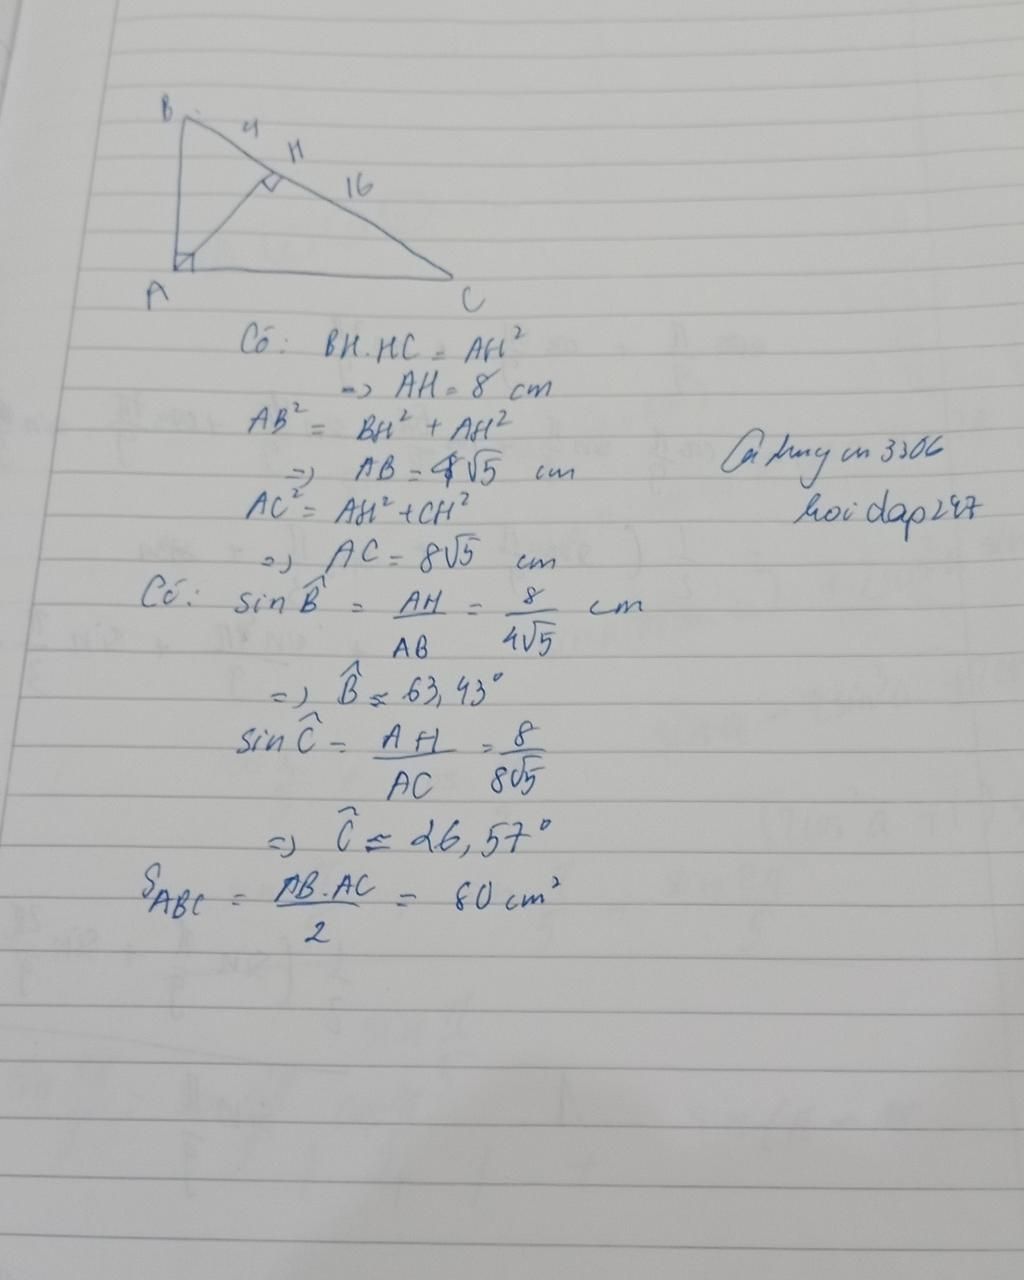 B
4
H
16
A
C
Có: BH.HC = AH²
=> AH = 8 cm
AB² = BH² + AH²
=> AB = 4√5 cm
AC² = AH² + CH²
=> AC = 8√5 cm
Có: sin B̂ = AH/AB = 8/4√5 cm
=> B̂ ≈ 63,43°
sin Ĉ = AH/AC = 8/8√5
=> Ĉ ≈ 26,57°
S_ABC = AB.AC/2 = 80 cm²
3306
hoidap247